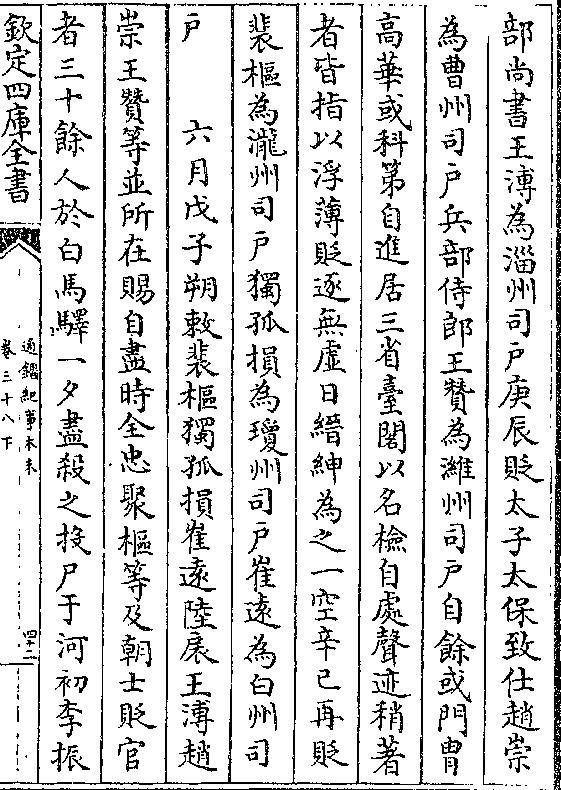 部尚書王溥為淄州司戸庚辰貶太子太保致仕趙崇
為曹州司戸兵部侍郎王贊為濰州司戸自餘或門胄
高華或科第自進居三省臺閣以名檢自處聲迹稍著
者皆指以浮薄貶逐無虚日縉紳為之一空辛巳再貶
裴樞為瀧州司戸獨孤損為瓊州司戸崔遠為白州司
戸　　六月戊子朔敕裴樞獨孤損崔遠陸扆王溥趙
崇王贊等並所在賜自盡時全忠聚樞等及朝士貶官
者三十餘人於白馬驛一夕盡殺之投尸于河初李振
欽定四庫全書
通鑑紀事本末
卷三十八下
四二